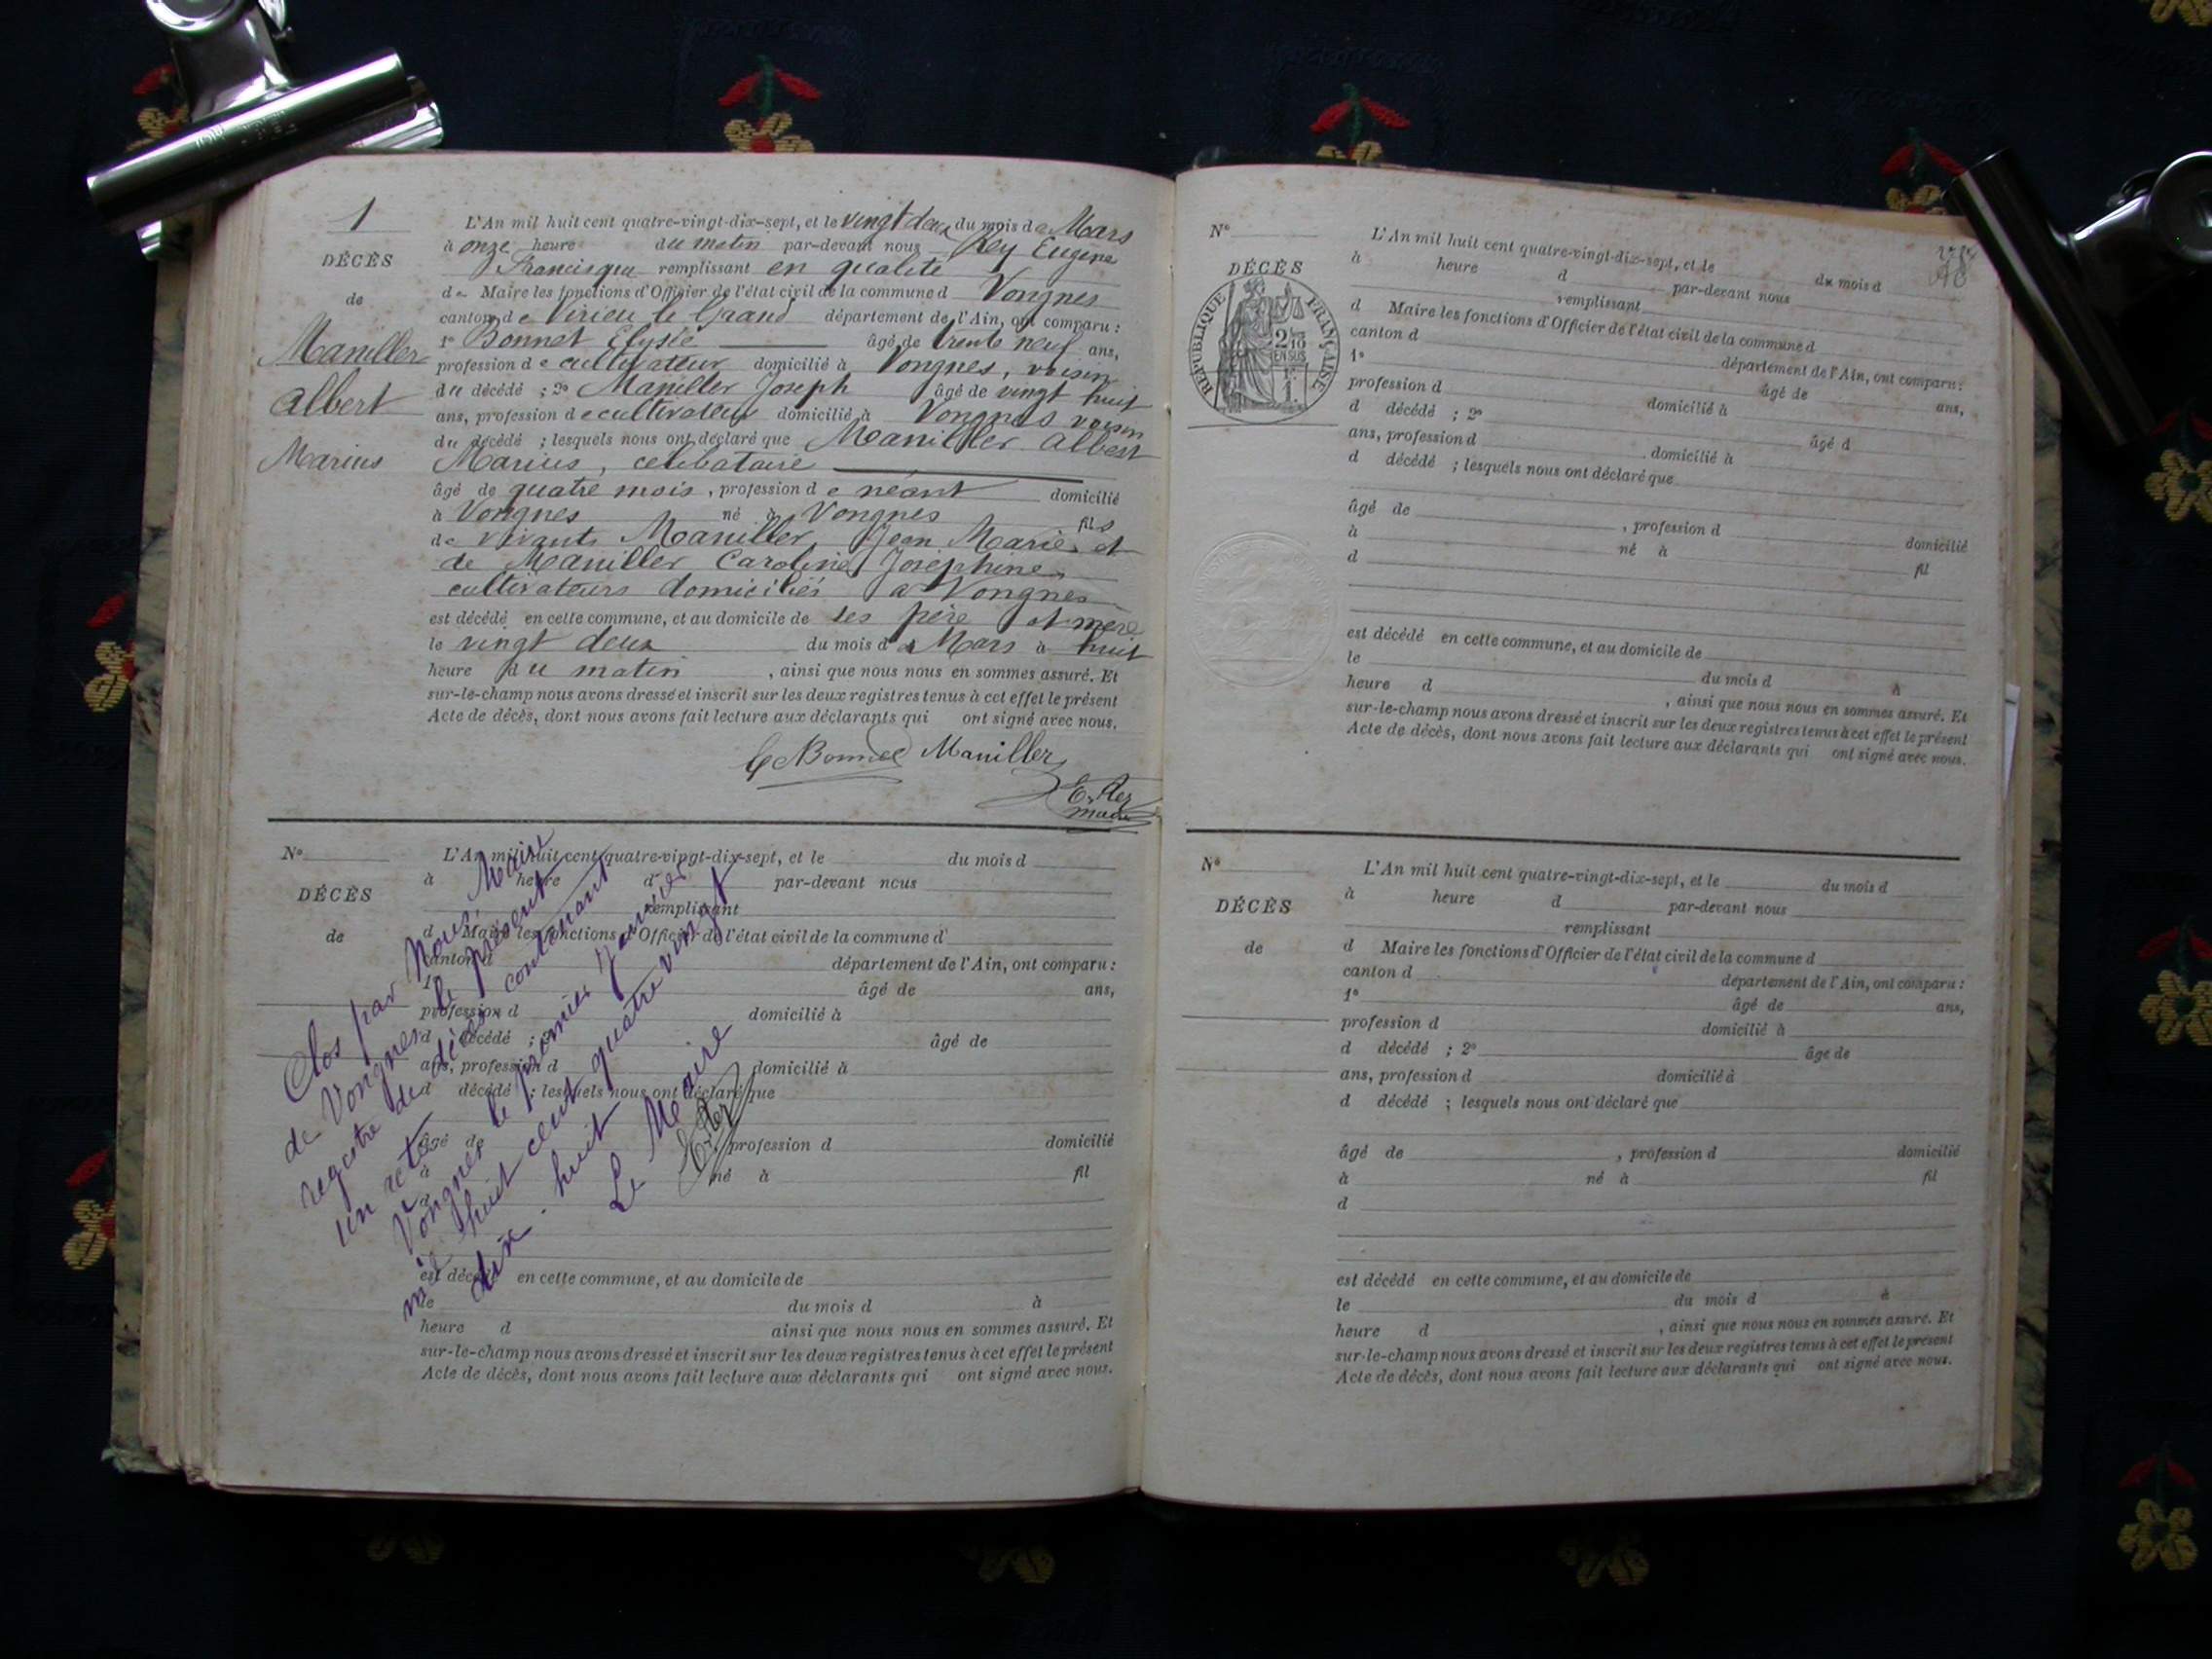 1
DÉCÈS
de
Maniller
Albert
Marius
L'An mil huit cent quatre-vingt-dix-sept, et le vingt deux du mois de Mars
à onze heure du matin par-devant nous Rey Eugène
Francisque remplissant en qualité
de Maire les fonctions d'Officier de l'état civil de la commune d Vongnes
canton de Virieu le Grand département de l'Ain, ont comparu :
1º Bonnet Elysée âgé de trente neuf ans,
profession de cultivateur domicilié à Vongnes, voisin
du décédé ; 2º Maniller Joseph âgé de vingt huit
ans, profession de cultivateur domicilié à Vongnes voisin
du décédé ; lesquels nous ont déclaré que Maniller Albert
Marius, celibataire
âgé de quatre mois, profession de néant domicilié
à Vongnes né à Vongnes fils
de vivants Maniller Jean Marie et
de Maniller Caroline Joséphine
cultivateurs domiciliés a Vongnes
est décédé en cette commune, et au domicile de ses père et mère
le vingt deux du mois de Mars à huit
heure du matin, ainsi que nous nous en sommes assuré. Et
sur-le-champ nous avons dressé et inscrit sur les deux registres tenus à cet effet le présent
Acte de décès, dont nous avons fait lecture aux déclarants qui ont signé avec nous.
Bonnet Maniller
E. Rey
maire
Nº
DÉCÈS
de
L'An mil huit cent quatre-vingt-dix-sept, et le du mois d
à heure d par-devant nous
remplissant
d Maire les fonctions d'Officier de l'état civil de la commune d
canton d département de l'Ain, ont comparu :
1º âgé de ans,
profession d domicilié à
d décédé ; 2º âgé de
ans, profession d domicilié à
d décédé ; lesquels nous ont déclaré que
âgé de , profession d domicilié
à né à fil
d
est décédé en cette commune, et au domicile de
le du mois d à
heure d ainsi que nous nous en sommes assuré. Et
sur-le-champ nous avons dressé et inscrit sur les deux registres tenus à cet effet le présent
Acte de décès, dont nous avons fait lecture aux déclarants qui ont signé avec nous.
Clos par Nous, Maire
de Vongnes le présent
registre de décès contenant
un acte
Vongnes le premier Janvier
mil huit cent quatre vingt
dix-huit
Le Maire
E. Rey
Nº
DÉCÈS
RÉPUBLIQUE FRANÇAISE
2/10
EN SUS
L'An mil huit cent quatre-vingt-dix-sept, et le du mois d
à heure d par-devant nous
remplissant
d Maire les fonctions d'Officier de l'état civil de la commune d
canton d département de l'Ain, ont comparu :
1º âgé de ans,
profession d domicilié à
d décédé ; 2º âgé d
ans, profession d domicilié à
d décédé ; lesquels nous ont déclaré que
âgé de , profession d domicilié
à né à fil
d
est décédé en cette commune, et au domicile de
le du mois d à
heure d , ainsi que nous nous en sommes assuré. Et
sur-le-champ nous avons dressé et inscrit sur les deux registres tenus à cet effet le présent
Acte de décès, dont nous avons fait lecture aux déclarants qui ont signé avec nous.
Nº
DÉCÈS
de
L'An mil huit cent quatre-vingt-dix-sept, et le du mois d
à heure d par-devant nous
remplissant
d Maire les fonctions d'Officier de l'état civil de la commune d
canton d département de l'Ain, ont comparu :
1º âgé de ans,
profession d domicilié à
d décédé ; 2º âge de
ans, profession d domicilié à
d décédé ; lesquels nous ont déclaré que
âgé de , profession d domicilié
à né à fil
d
est décédé en cette commune, et au domicile de
le du mois d à
heure d , ainsi que nous nous en sommes assuré. Et
sur-le-champ nous avons dressé et inscrit sur les deux registres tenus à cet effet le présent
Acte de décès, dont nous avons fait lecture aux déclarants qui ont signé avec nous.